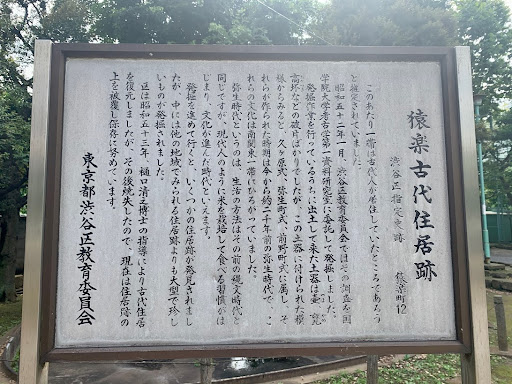 猿楽古代住居跡
渋谷区指定史跡 猿楽町12
このあたり一帯は古代人が居住していたところであろう
と推定されていました。
昭和五十二年一月、渋谷区教育委員会ではその調査を国
学院大学考古学第一資料研究室に委託して発掘しました。
発掘作業を行っているうちに出土して来た土器は壷、甕、
高坏などの破片ばかりでしたが、この土器に付けられた模
様からみると、久ヶ原式、弥生町式、前野町式に属し、そ
れらが作られた時期は今から約二千年前の弥生時代で、こ
れらの文化は南関東一帯にひろがっていました。
弥生時代というのは、生活の方法はその前の縄文時代と
同じですが、現代人のように米を栽培して食べる習慣がは
じまり、文化の進んだ時代といえます。
発掘を進めて行くと、いくつかの住居跡が発見されまし
たが、中には他の地域でみられる住居跡よりも大型で珍し
いものが発掘されました。
区は昭和五十三年、樋口清之博士の指導により古代住居
を復元しましたが、その後焼失したので、現在は住居跡の
上を被覆し保存に努めています。
東京都渋谷区教育委員会